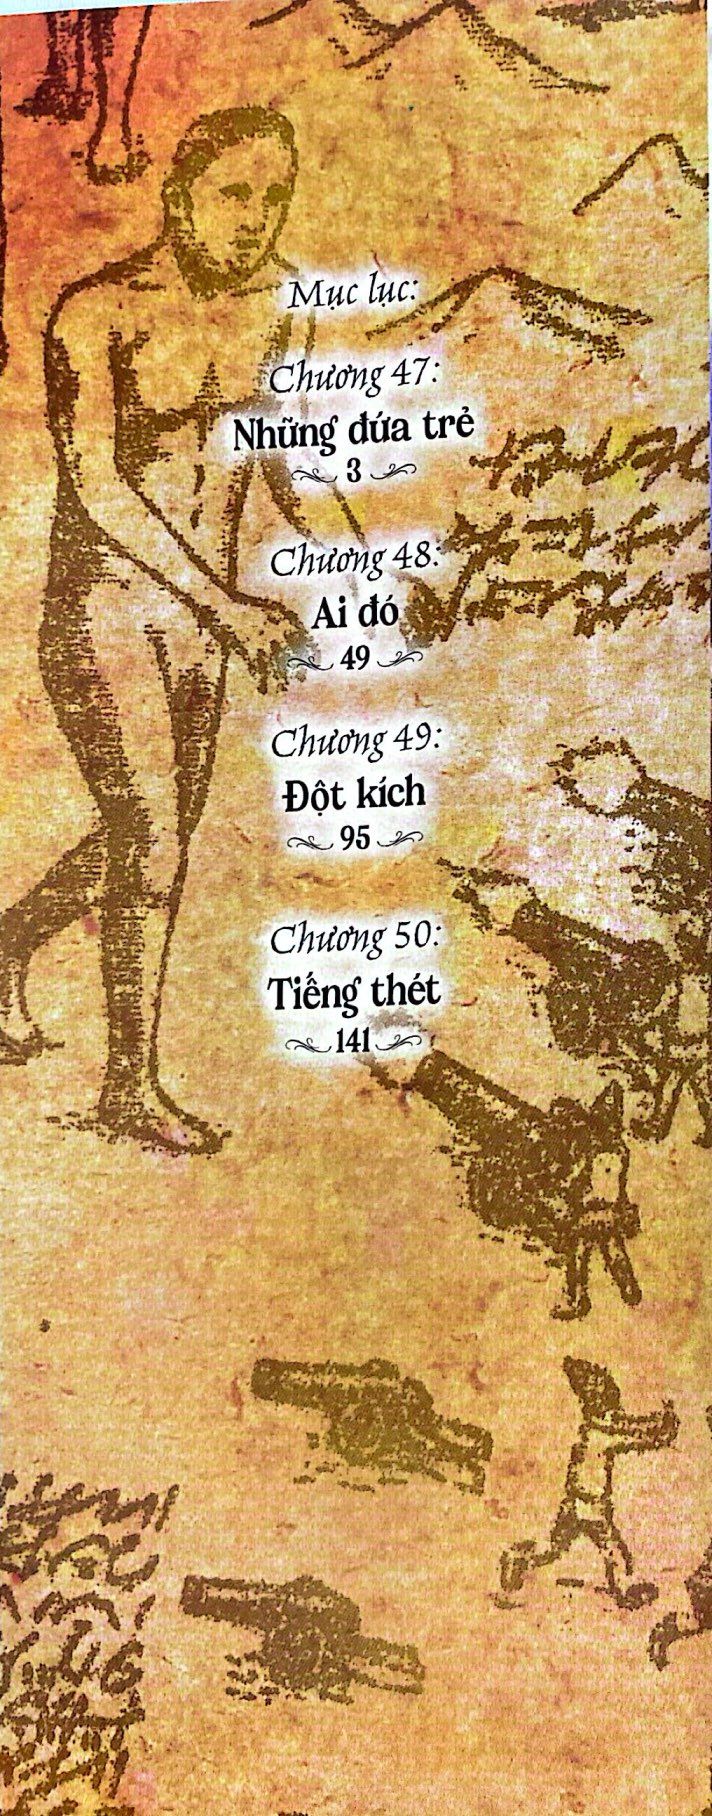 Mục lục:
Chương 47:
Những đứa trẻ
3
Chương 48:
Ai đó
49
Chương 49:
Đột kích
95
Chương 50:
Tiếng thét
141